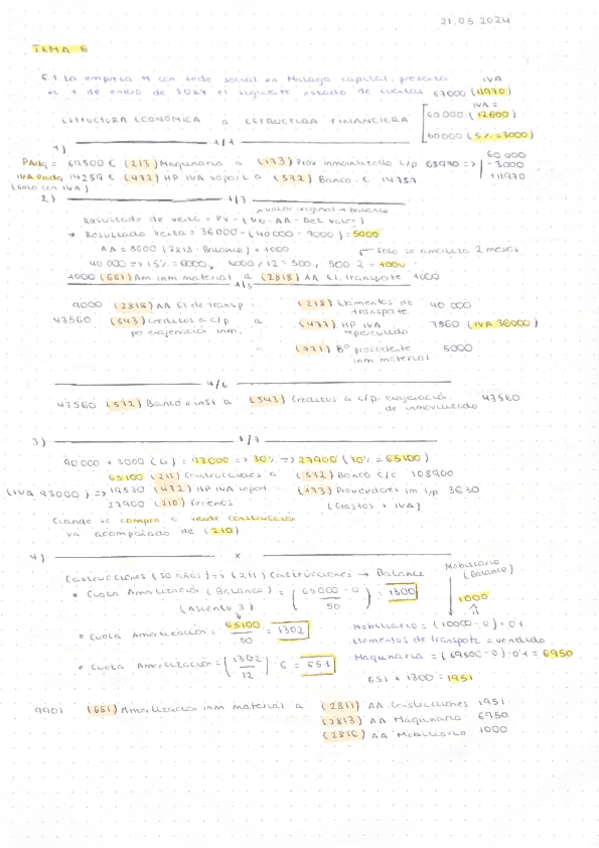 21.05.2024
TEMA 6
6.1 La empresa M con sede social en Malaga capital, presenta IVA
el 1 de enero de 20X4 el siguiente estado de cuentas 57000 (11970)
IVA =
60000 (12600)
ESTRUCTURA ECONÓMICA a ESTRUCTURA FINANCIERA
60000 (5% = 3000)
1) 1/1
60 000
PAdq = 69500 € (213) Maquinaria a (173) Prov inmovilizado L/p 68970 => - 3000
IVA Padq 14259 € (472) HP IVA soport a (572) Banco € 14789 + 11970
(solo con IVA)
2) 1/3
valor original → Balance
Resultado de venta = PV - (VO - AA - Det valor)
→ Resultado venta = 36000 - (40 000 - 9000) = 5000
AA = 8000 (2818 - Balance) + 1000
Solo se amortiza 2 meses
40 000 => 15% = 6000, 6000/12 = 500, 500·2 = 1000
1000 (681) Am inm material a (2818) AA El. transporte 1000
1/3
9000 (2818) AA El de transp a (218) Elementos de transporte 40 000
43560 (543) Creditos a c/p a (477) HP IVA repercutido 7560 (IVA 36000)
por enajenación inm.
(771) Bº procedente inm material 5000
4/6
43560 (572) Banco e inst a (543) Creditos a c/p. enajenación de inmovilizado 43560
3) 1/7
90 000 + 3000 (G) = 93000 => 30% => 27900 (70% = 65100)
65100 (211) Construcciones a (572) Banco c/c 108900
(IVA 93000) => 19530 (472) HP IVA soport (173) Proveedores im l/p 3630
27900 (210) Terrenos (Gastos + IVA)
Cuando se compra o vende construcción
va acompañado de (210)
4) x
Construcciones (50 años) => (211) Construcciones → Balance
Mobiliario (Balance)
• Cuota Amortización (Balance) = (65000 - 0 / 50) = 1300
1000
(Asiento 3)
• Cuota Amortización = 65100 / 50 = 1302
Mobiliario = (10000 - 0)·0'1
Elementos de transporte = vendido
• Cuota Amortización = (1302 / 12)·6 = 651
Maquinaria = (69500 - 0)·0'1 = 6950
651 + 1300 = 1951
9901 (681) Amortización inm material a (2811) AA Construcciones 1951
(2813) AA Maquinaria 6950
(2816) AA Mobiliario 1000